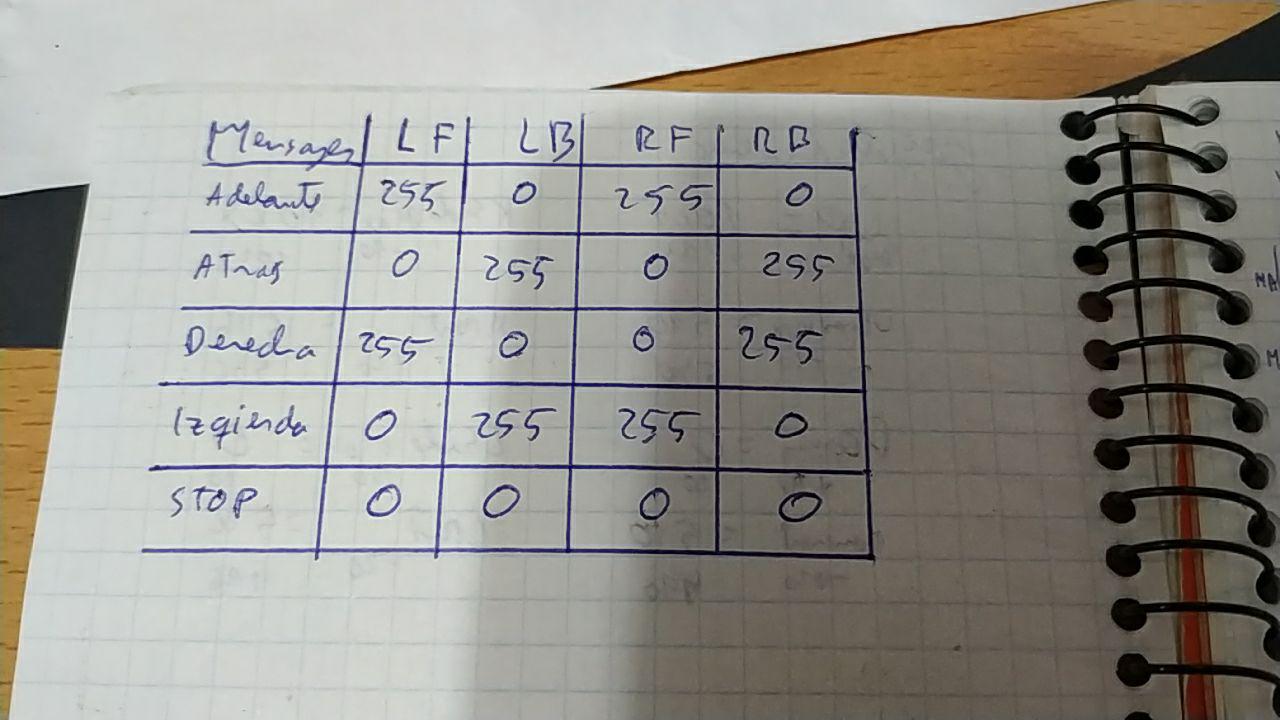 Mensajes LF LB RF RB
Adelante 255 0 255 0
Atras 0 255 0 255
Derecha 255 0 0 255
Izqierda 0 255 255 0
STOP 0 0 0 0